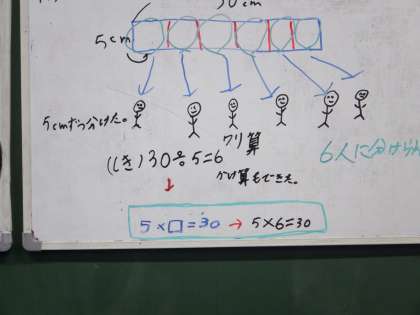 30cm
5cm
5cmずつ分けた。
ワリ算
(しき)30÷5=6
かけ算もできた。
6人に分けられ
5×□=30 → 5×6=30